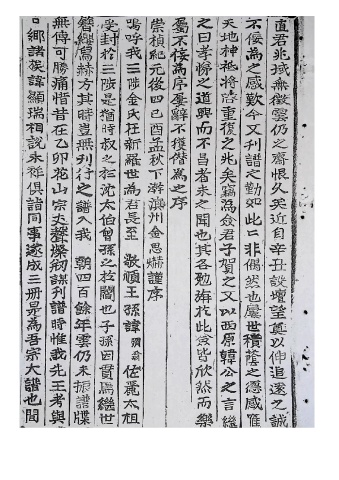 直君兆域無徵雲仍之齎恨久矣近自辛丑設壇望奠以伸追遠之誠
不佞爲之感歎今又刊譜之勤如此非偶然也屢世積蔭之德感
天地神祗將啓重復之兆矣竊爲僉君子賀之又以西原韓公之言繼
之曰孝悌之道興而不昌者未之聞也其各勉旃於此僉皆欣然而樂
屬不佞爲序屢辭不獲僭爲之序
崇禎紀元後四己酉孟秋下澣瀛州金思爀謹序
嗚呼我三陟金氏在新羅世爲君長至 敬順王孫諱渭翁佐麗太祖
受封於三陟是猶時叔之於沈太伯曾孫之於閻也子孫因貫焉繼世
簪纓舃赫方其時豈無刊行之譜入我 朝四百餘年雲仍未振譜牒
無傳可勝痛惜昔在乙卯花山宗丈燦謀刊譜時惟我先王考與
鄉諸族諱顯瑞相說永祚俱諸同事遂成三冊是爲吾宗大譜也間